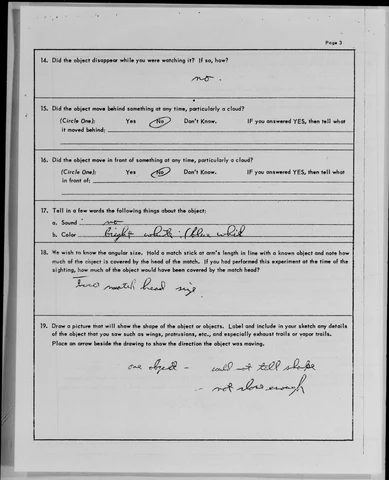 Page 3
14. Did the object disappear while you were watching it? If so, how?
no.
15. Did the object move behind something at any time, particularly a cloud?
(Circle One): Yes No Don't Know. IF you answered YES, then tell what
it moved behind:
16. Did the object move in front of something at any time, particularly a cloud?
(Circle One): Yes No Don't Know. IF you answered YES, then tell what
in front of:
17. Tell in a few words the following things about the object:
a. Sound no
b. Color bright white (blue
18. We wish to know the angular size. Hold a match stick at arm's length in line with a known object and note how
much of the object is covered by the head of the match. If you had performed this experiment at the time of the
sighting, how much of the object would have been covered by the match head?
match head size.
19. Draw a picture that will show the shape of the object or objects. Label and include in your sketch any details
of the object that you saw such as wings, protrusions, etc., and especially exhaust trails or vapor trails.
Place an arrow beside the drawing to show the direction the object was moving.
one object - could not tell shape
- not close enough